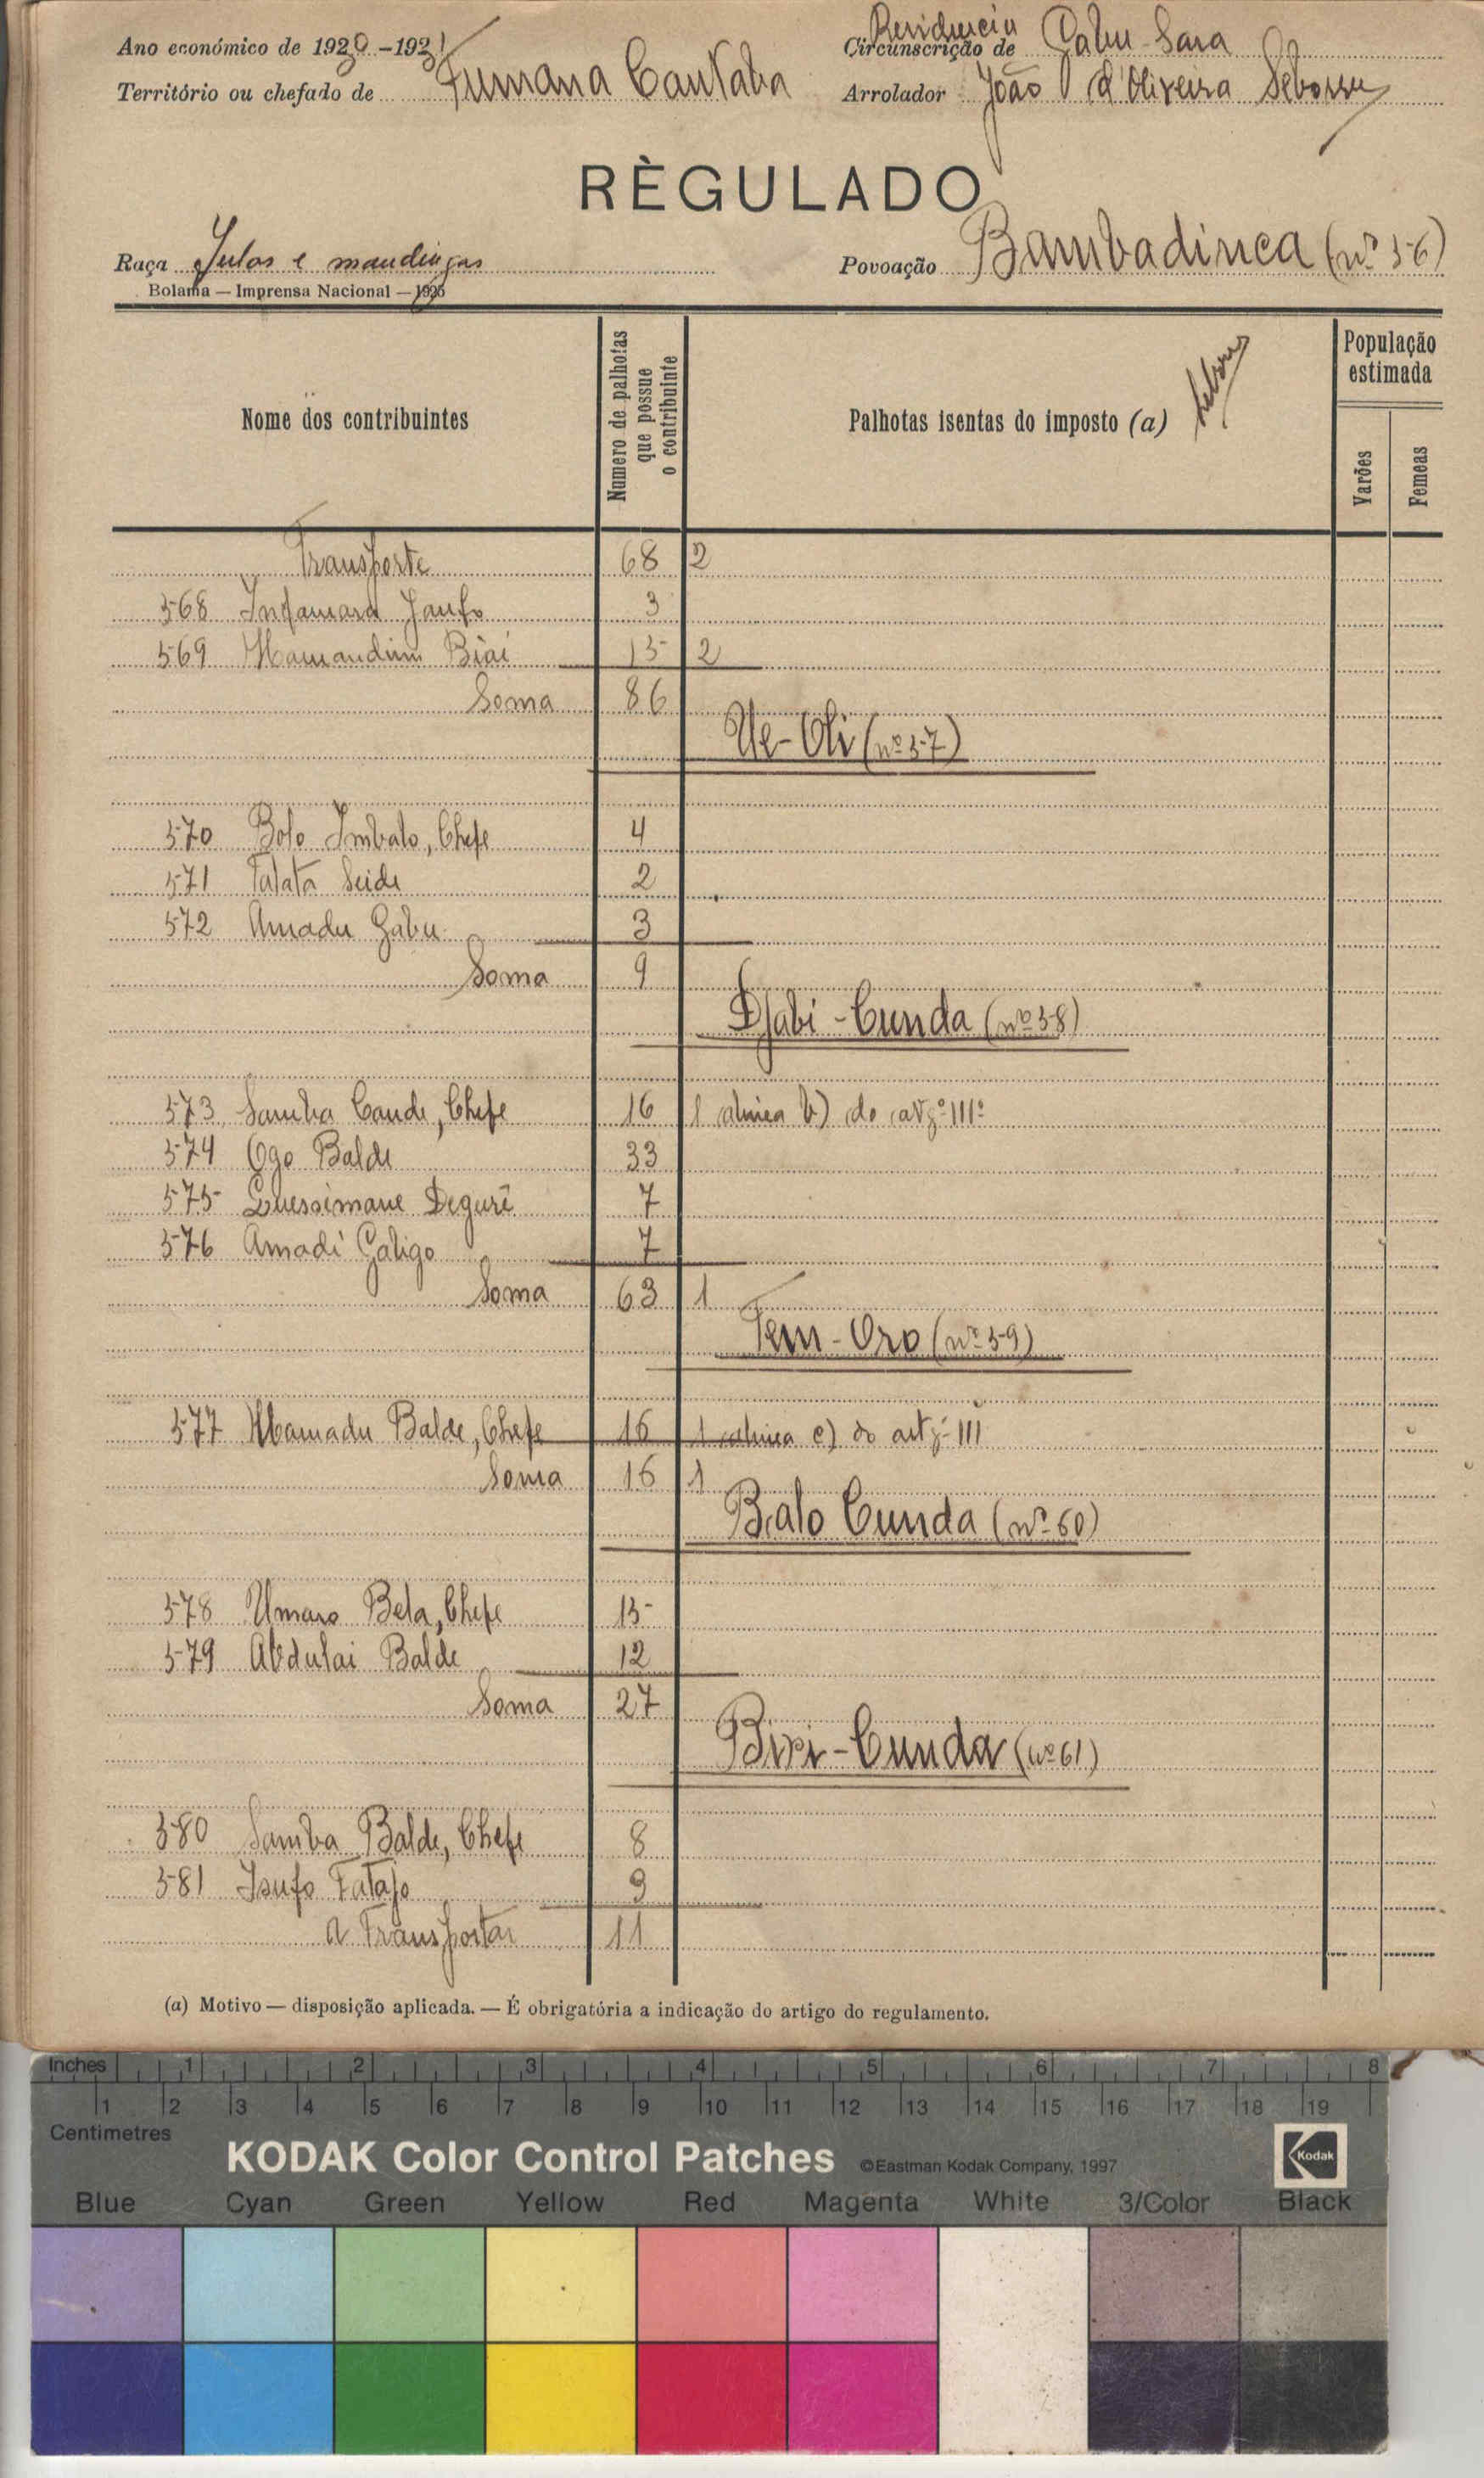 Residencia
Ano económico de 1930-1931 Circunscrição de Gabu-Sara
Território ou chefado de Tumana Cantaba Arrolador João d'Oliveira
RÈGULADO
Raça Fulas e mandingas Povoação Bambadinca (nº 56)
Bolama — Imprensa Nacional — 1925
Nome dos contribuintes
Numero de palhotas que possue o contribuinte
Palhotas isentas do imposto (a)
População estimada
Varões
Femeas
Transporte 68 2
568 Infamara 3
569 Mamandim Biai 15 2
Soma 86
Ue-Oli (nº 57)
570 Bolo Imbalo, Chefe 4
571 Talata Seide 2
572 Amadu Gabu 3
Soma 9
Djabi-Cunda (nº 58)
573 Samba Cande, Chefe 16 1 alinea b) do artgº 111º
574 Ogo Balde 33
575 Quessimane Deguré 7
576 Amadi Galigo 7
Soma 63 1
Tem-Oro (nº 59)
577 Mamadu Balde, Chefe 16 1 alinea c) do artgº 111
Soma 16 1
Balo Cunda (nº 60)
578 Umaro Bela, Chefe 15
579 Abdulai Balde 12
Soma 27
Biri-Cunda (nº 61)
580 Samba Balde, Chefe 8
581 Isufo Fatajo 3
A Transportar 11
(a) Motivo — disposição aplicada. — É obrigatória a indicação do artigo do regulamento.
Inches 1 2 3 4 5 6 7 8
1 2 3 4 5 6 7 8 9 10 11 12 13 14 15 16 17 18 19
Centimetres
KODAK Color Control Patches ©Eastman Kodak Company, 1997 Kodak
Blue Cyan Green Yellow Red Magenta White 3/Color Black